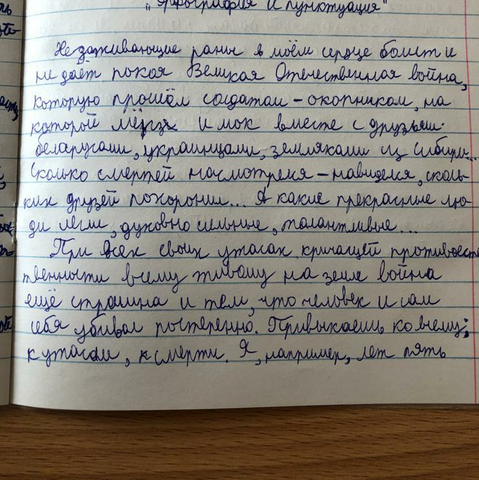 „Орфография и пунктуация"
Незаживающие раны в моём сердце болит и
не даёт покоя Великая Отечественная война,
которую прошёл солдатом-окопником, на
которой мёрз и мок вместе с друзьями:
беларусами, украинцами, земляками из Сибири...
Сколько смертей насмотрелся-навиделся, сколь-
ких друзей похоронил... А какие прекрасные лю-
ди легли, духовно сильные, талантливые...
При всех своих ужасах, кричащей противоес
твенности всему живому на земле война
ещё страшна и тем, что человек и сам
себя убивал постепенно. Привыкаешь ко всему:
к ужасам, к смерти. Я, например, лет пять